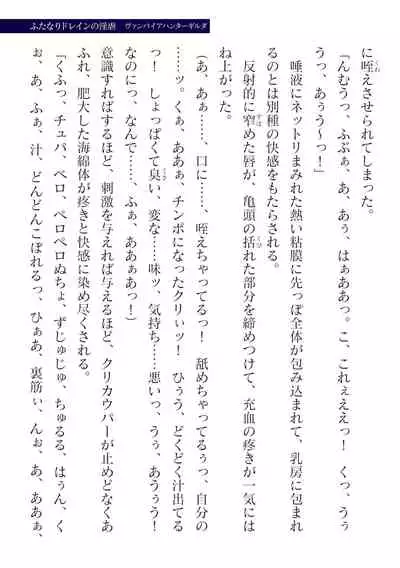 ふたなりドレインの淫虐　ヴァンパイアハンターギルダ
に咥えさせられてしまった。
「んむうっ、ふぶぁ、あ、あぅ、はぁああっ。こ、これぇええっ！　くっ、うぅ
うっ、あぅう～っ！」
　唾液にネットリまみれた熱い粘膜に先っぽ全体が包み込まれて、乳房に包まれ
るのとは別種の快感をもたらされる。
　反射的に窄めた唇が、亀頭の括れた部分を締めつけて、充血の疼きが一気には
ね上がった。
（あ、あぁ……、口に……、咥えちゃってるっ！　舐めちゃってるぅっ、自分の
……ッ。くぁ、ああぁ、チンポになったクリぃッ！　ひぅう、どくどく汁出てる
っ！　しょっぱくて臭い、変な……味ッ、気持ち……悪いっ、うぅ、あうぅう！
なのにっ、なんで……、ふぁ、あああぁあっ！）
　意識すればするほど、刺激を与えれば与えるほど、クリカウパーが止めどなくあ
ふれ、肥大した海綿体が疼きと快感に染め尽くされる。
「くふっ、チュパ、ベロ、ペロペロぬちょ、ずじゅじゅ、ちゅるる、はぅん、く
ぉ、あ、ふぁ、汁、どんどんこぼれるっ、ひぁあ、裏筋ぃ、んぉ、あ、ああぁ、